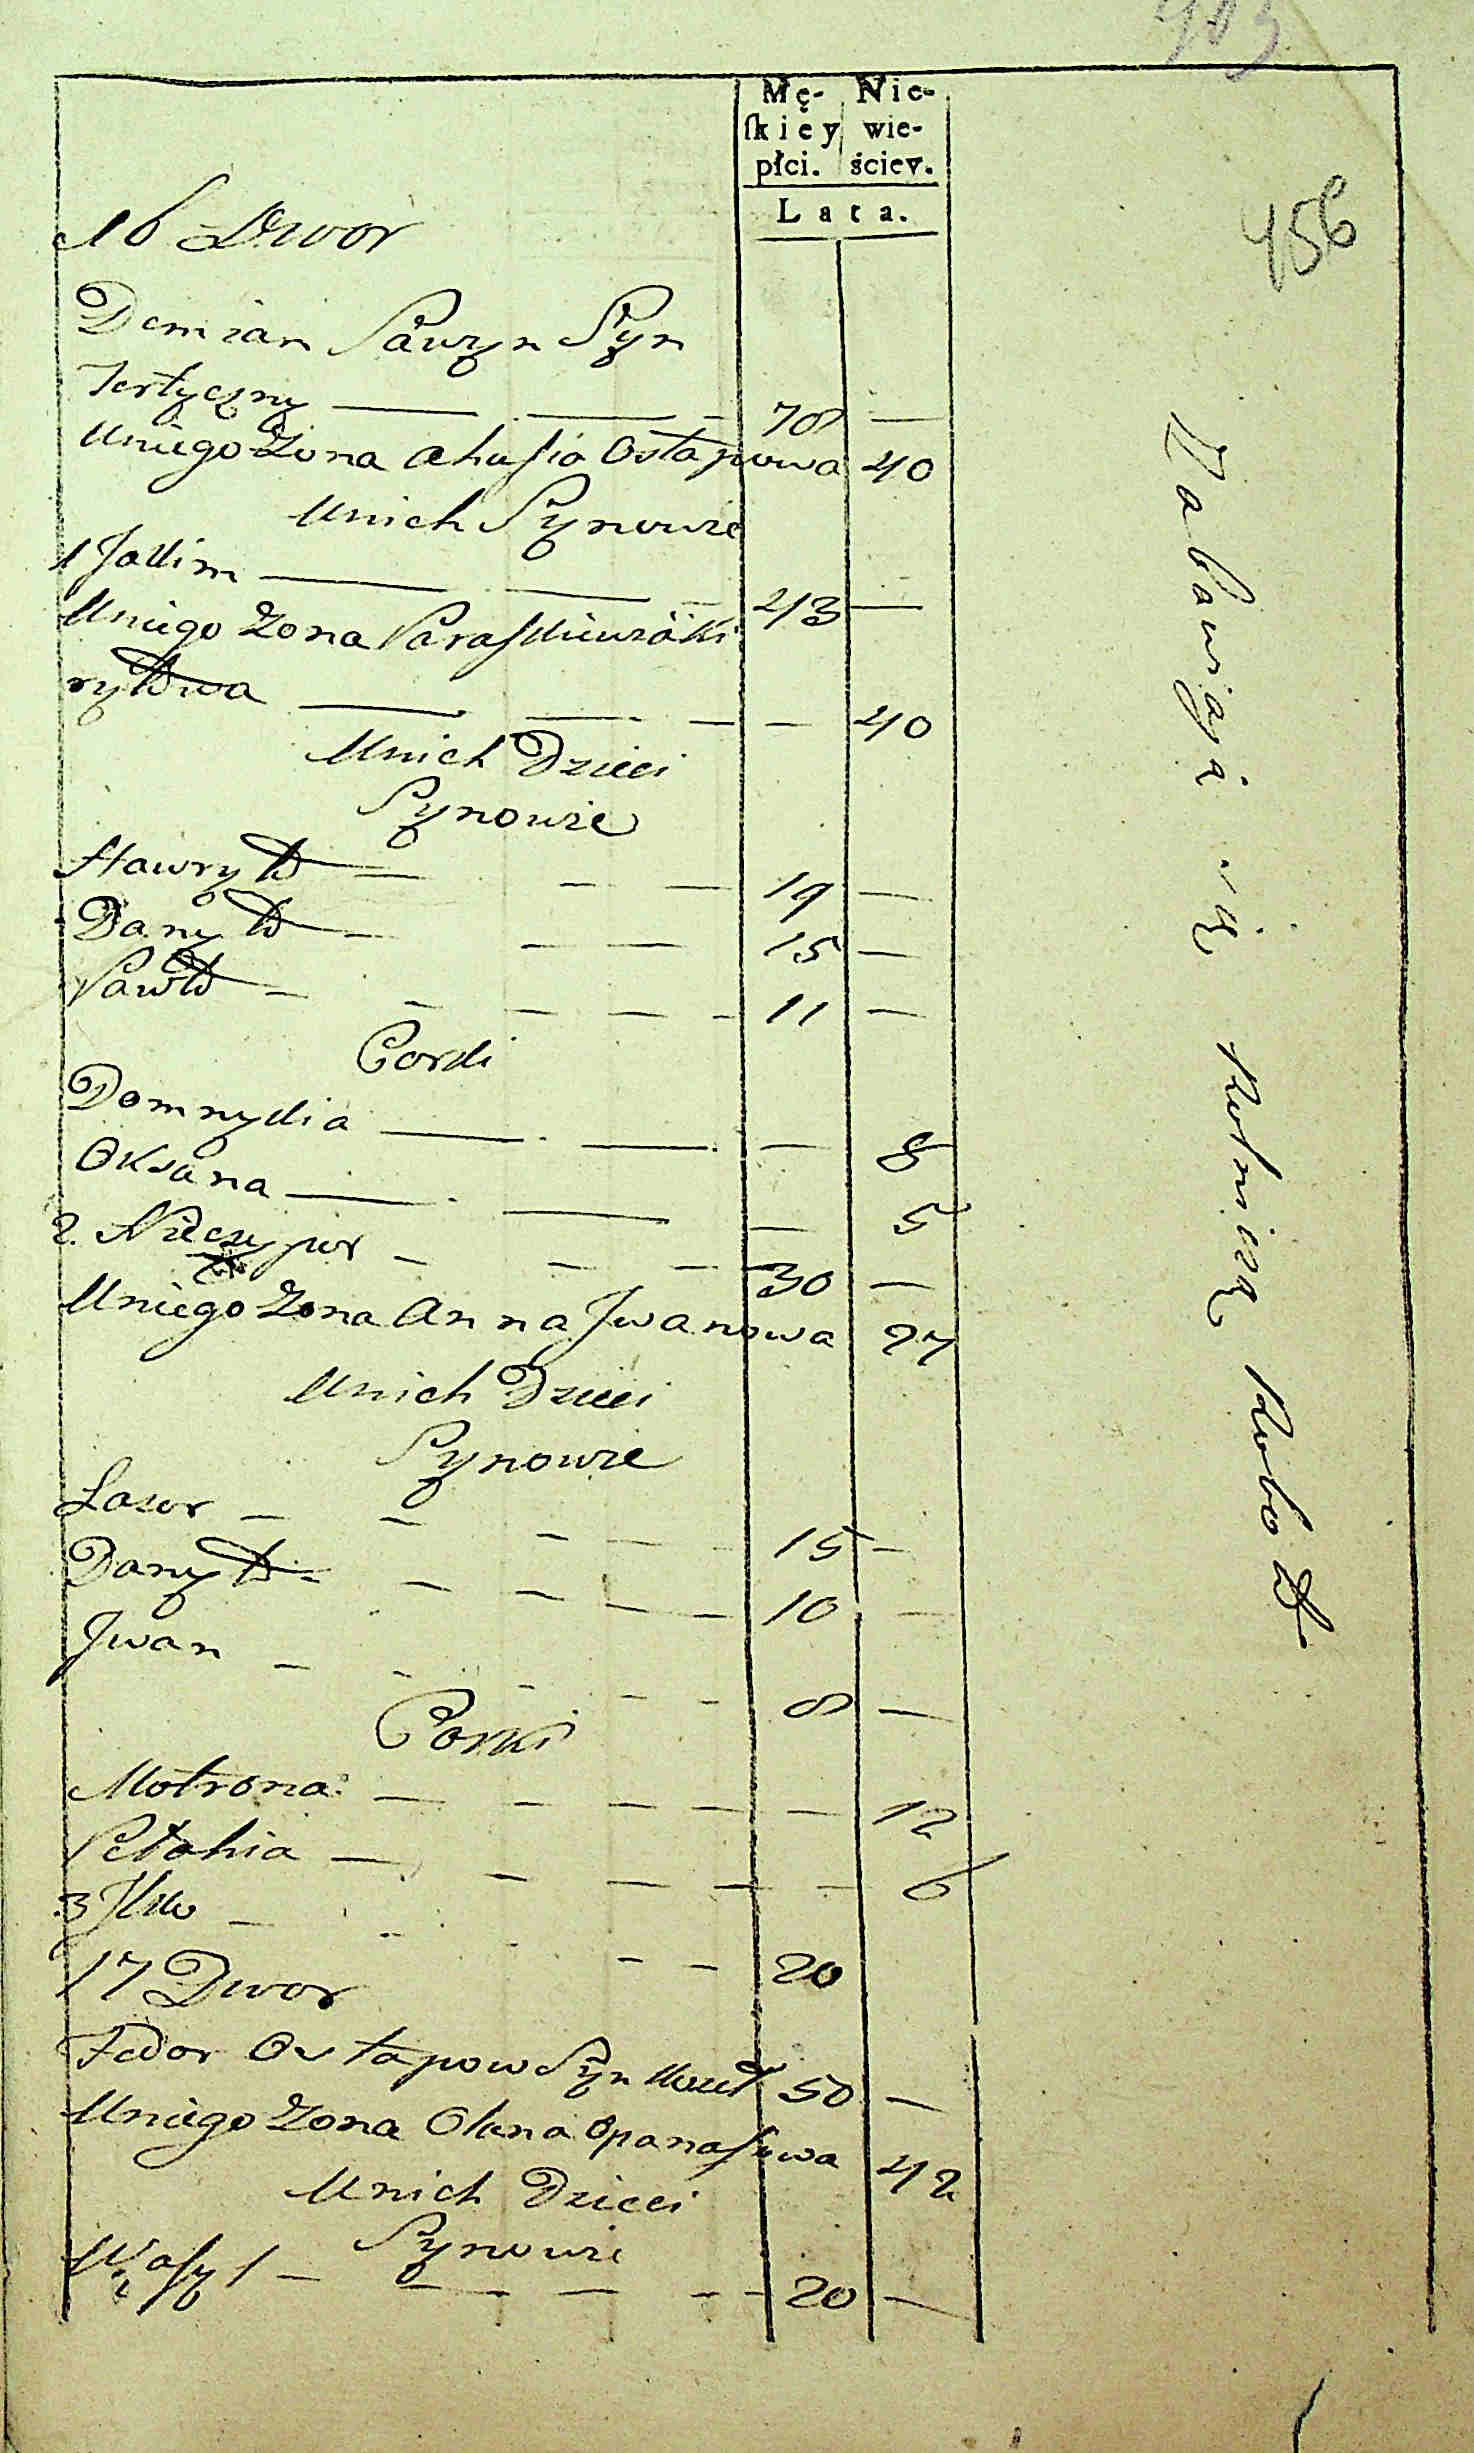 456
Mę- Nie-
ſkiey wie-
płci. ściey.
Lata.
16 Dwor
Demian Sawzyn Syn
Tertyczny — — 78 —
Uniego Zona Ahafia Ostapowa 40
Unich Synowie
1 Jakim — — 43 —
Uniego Zona Paraskiewia Ki
ryłowa — — — — 40
Unich Dzieci
Synowie
Hawryło — — — 19 —
Danyło — — — 15 —
Pawło — — — — — 11 —
Corki
Domnykia — — — 8
Oksana — — — 5
2. Nieczypor — — — 30 —
Uniego Zona Anna Jwanowa 27
Unich Dzieci
Synowie
Lazor — — — — — 15 —
Danyło — — — — — 10 —
Jwan — — — — — 8 —
Corki
Motrona — — — — — 12
Pełahia — — — — — 6
3 Jłko — — — — 20
17 Dwor
Fedor Ostapow Syn 50 —
Uniego Zona Olena Opanasowa 42
Unich Dzieci
Synowie
Wasyl — — — — — 20 —
Zabawiaią się Rolniczą Robotą